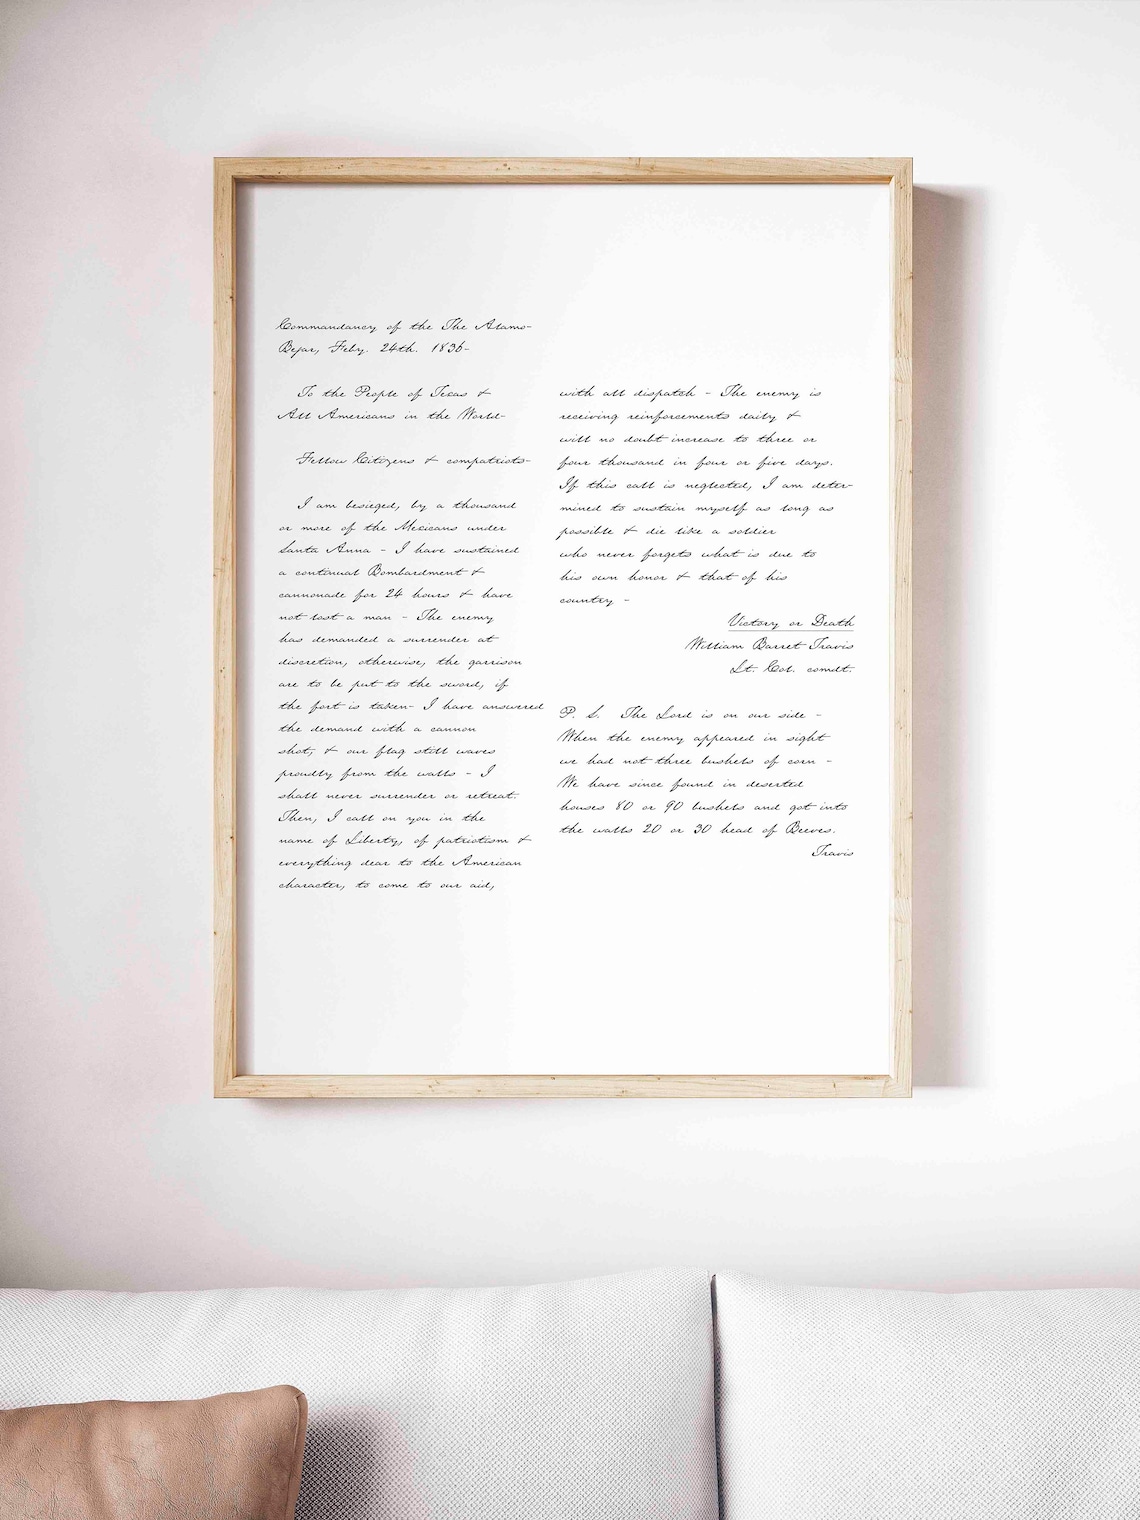 Commandancy of the The Alamo-
Bejar, Feby. 24th. 1836-
To the People of Texas &
All Americans in the World-
Fellow Citizens & compatriots-
I am besieged, by a thousand
or more of the Mexicans under
Santa Anna - I have sustained
a continual Bombardment &
cannonade for 24 hours & have
not lost a man - The enemy
has demanded a surrender at
discretion, otherwise, the garrison
are to be put to the sword, if
the fort is taken- I have answered
the demand with a cannon
shot, & our flag still waves
proudly from the walls - I
shall never surrender or retreat.
Then, I call on you in the
name of Liberty, of patriotism &
everything dear to the American
character, to come to our aid,
with all dispatch - The enemy is
receiving reinforcements daily &
will no doubt increase to three or
four thousand in four or five days.
If this call is neglected, I am deter-
mined to sustain myself as long as
possible & die like a soldier
who never forgets what is due to
his own honor & that of his
country -
Victory or Death
William Barret Travis
Lt. Col. comdt.
P. S. The Lord is on our side -
When the enemy appeared in sight
we had not three bushels of corn -
We have since found in deserted
houses 80 or 90 bushels and got into
the walls 20 or 30 head of Beeves.
Travis